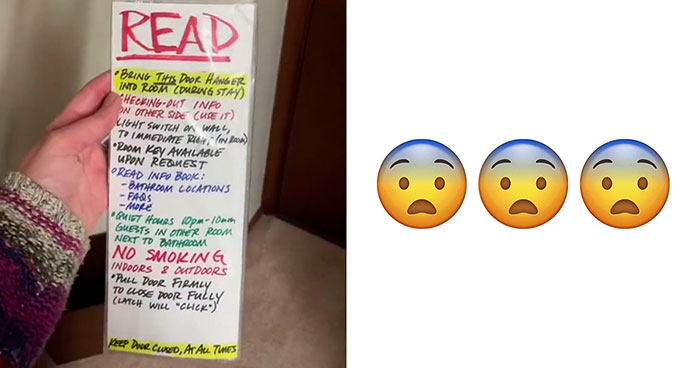 READ
• BRING THIS DOOR HANGER
INTO ROOM (DURING STAY)
CHECKING-OUT INFO
ON OTHER SIDE (USE IT)
LIGHT SWITCH ON WALL,
TO IMMEDIATE RIGHT (IN ROOM)
• ROOM KEY AVAILABLE
UPON REQUEST
• READ INFO BOOK:
- BATHROOM LOCATIONS
- FAQS
- MORE
• QUIET HOURS 10pm-10am
GUESTS IN OTHER ROOM
NEXT TO BATHROOM
NO SMOKING
INDOORS & OUTDOORS
• PULL DOOR FIRMLY
TO CLOSE DOOR FULLY
(LATCH WILL "CLICK")
KEEP DOOR CLOSED, AT ALL TIMES